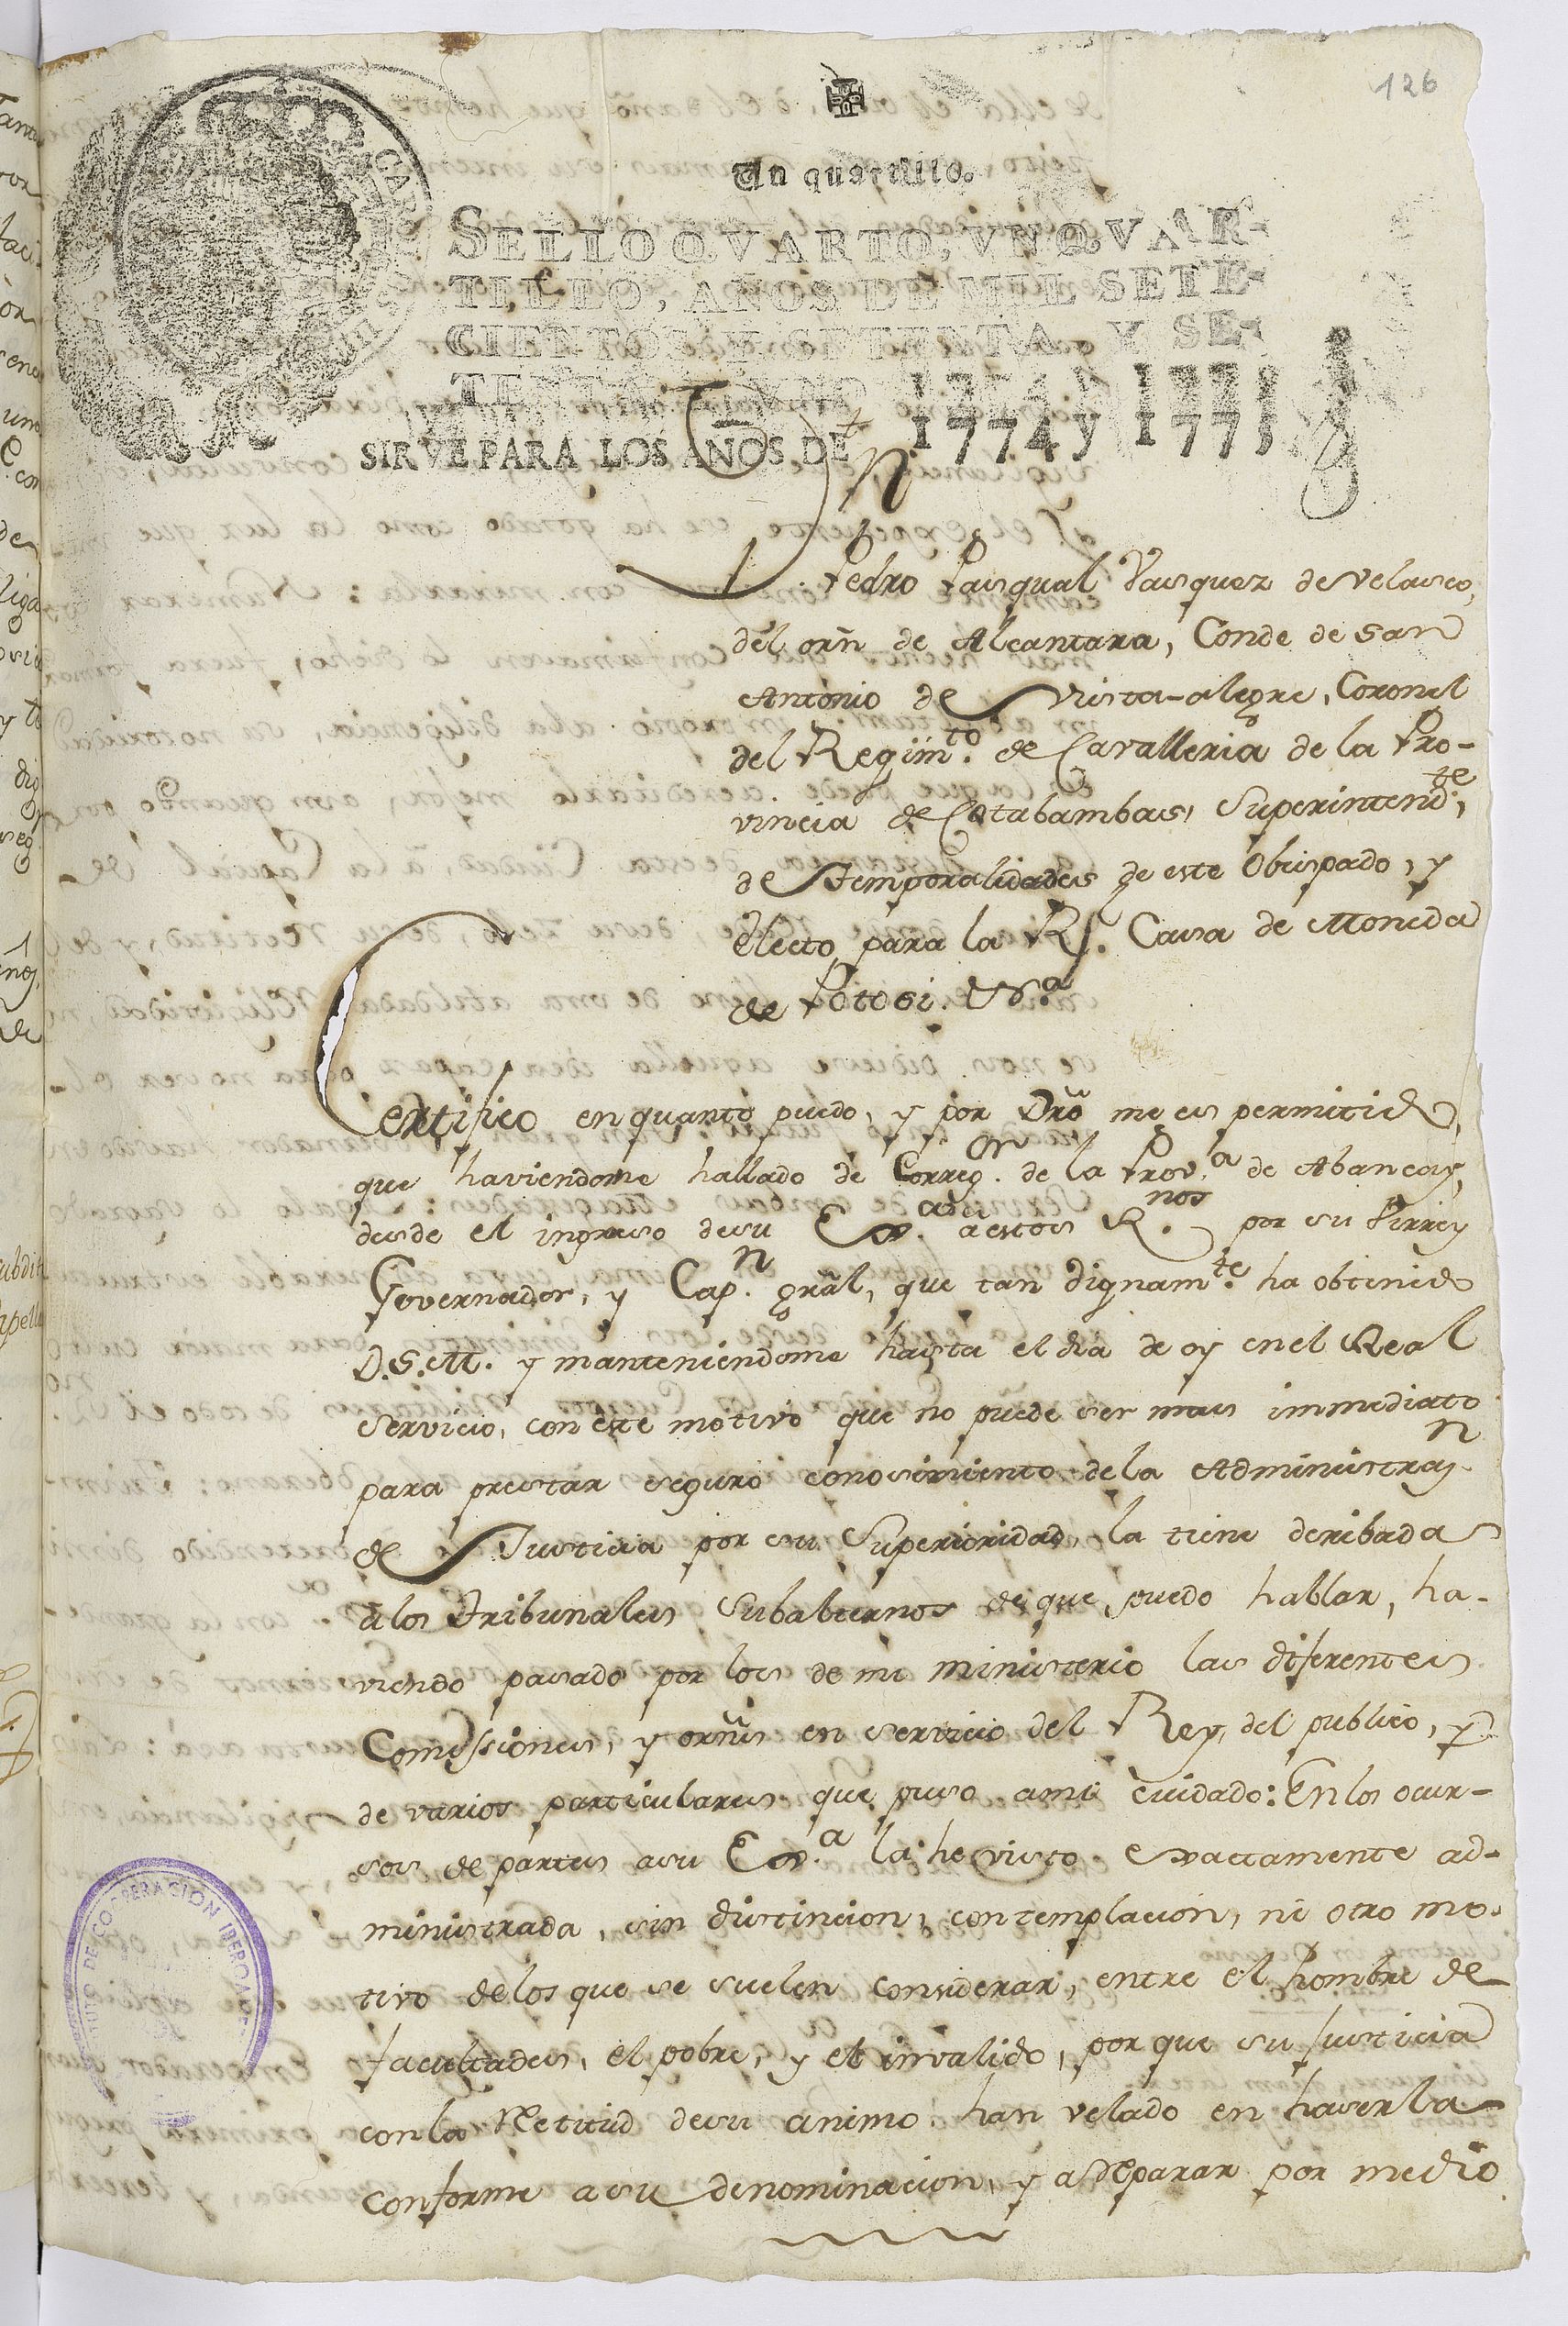 126
Un quartillo.
SELLO QVARTO, VN QVAR-
TILLO, AÑOS DE MIL SETE-
CIENTOS Y SETENTA, Y SE-
TENTA Y VNO
SIRVE PARA LOS AÑOS DE 1774 y 1775
Dn
Pedro Pasqual Vasquez de Velasco,
del orñ de Alcantara, Conde de San
Antonio de Vista-alegre, Coronel
del Regimto. de Cavalleria de la Pro-
vincia de Cotabambas, Superintendte.,
de Temporalidades de este Obispado, y
electo para la Rl. Casa de Moneda
de Potosi. Va.
Certifico en quanto puedo, y por Dro me es permitido,
que haviendome hallado de Correg.or de la Prov.a de Abancay,
desde el ingreso de su Exa. a estos R.nos por su Virrey
Governador, y Cap.n gral, que tan dignam.te ha obtenido
D.S.M. y manteniendome hasta el dia de oy en el Real
servicio, con este motivo que no puede ser mas immediato
para prestar seguro conosimiento de la Administraz.n
de Justicia por su Superioridad, la tiene deribada
à los Tribunales Subalternos de que puedo hablar, ha-
viendo pasado por los de mi ministerio las diferentes
Comissiones, y orñs en servicio del Rey, del publico, y
de varios particulares que puso ami cuidado: En los ocur-
sos de partes asu Ex.a la he visto exactamente ad-
ministrada, sin distincion, contemplacion, ni otro mo-
tivo delos que se suelen considerar, entre el hombre de
facultades, el pobre, y el invalido, por que su Justicia
con la Retitud desu animo han velado en haserla
conforme asu denominacion, y a Separar por medio
TITUTO DE COOPERACION IBEROA